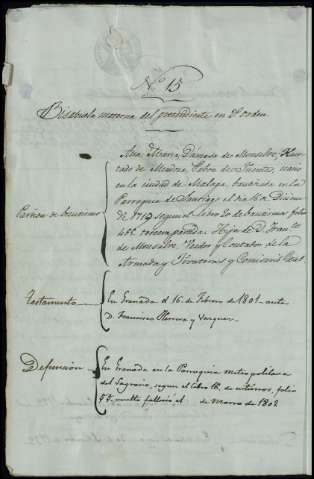 Nº 15
Bisabuela materna del pretendiente en 2º orden.
Ana Maria Dámaso de Monsalve, Hur-
tado de Mendoza, Cobos de la Fuente, nació
en la ciudad de Malaga, bautizada en la
Parroquia de Santiago el dia 16 de Diciem-
de 1719 segun el libro 20 de bautismos folio
Partida de bautismo
Hija de D. Franco.
de Monsalve, Veedor y Contador de la
Armada y Fronteras y Comisario Real.
Testamento
En Granada el 16 de Febrero de 1801 ante
D. Francisco Herrera y Vazquez.
Defunción
En Granada en la Parroquia metropolitana
del Sagrario, segun el libro 18 de entierros, folio
vuelto falleció el de Marzo de 1802